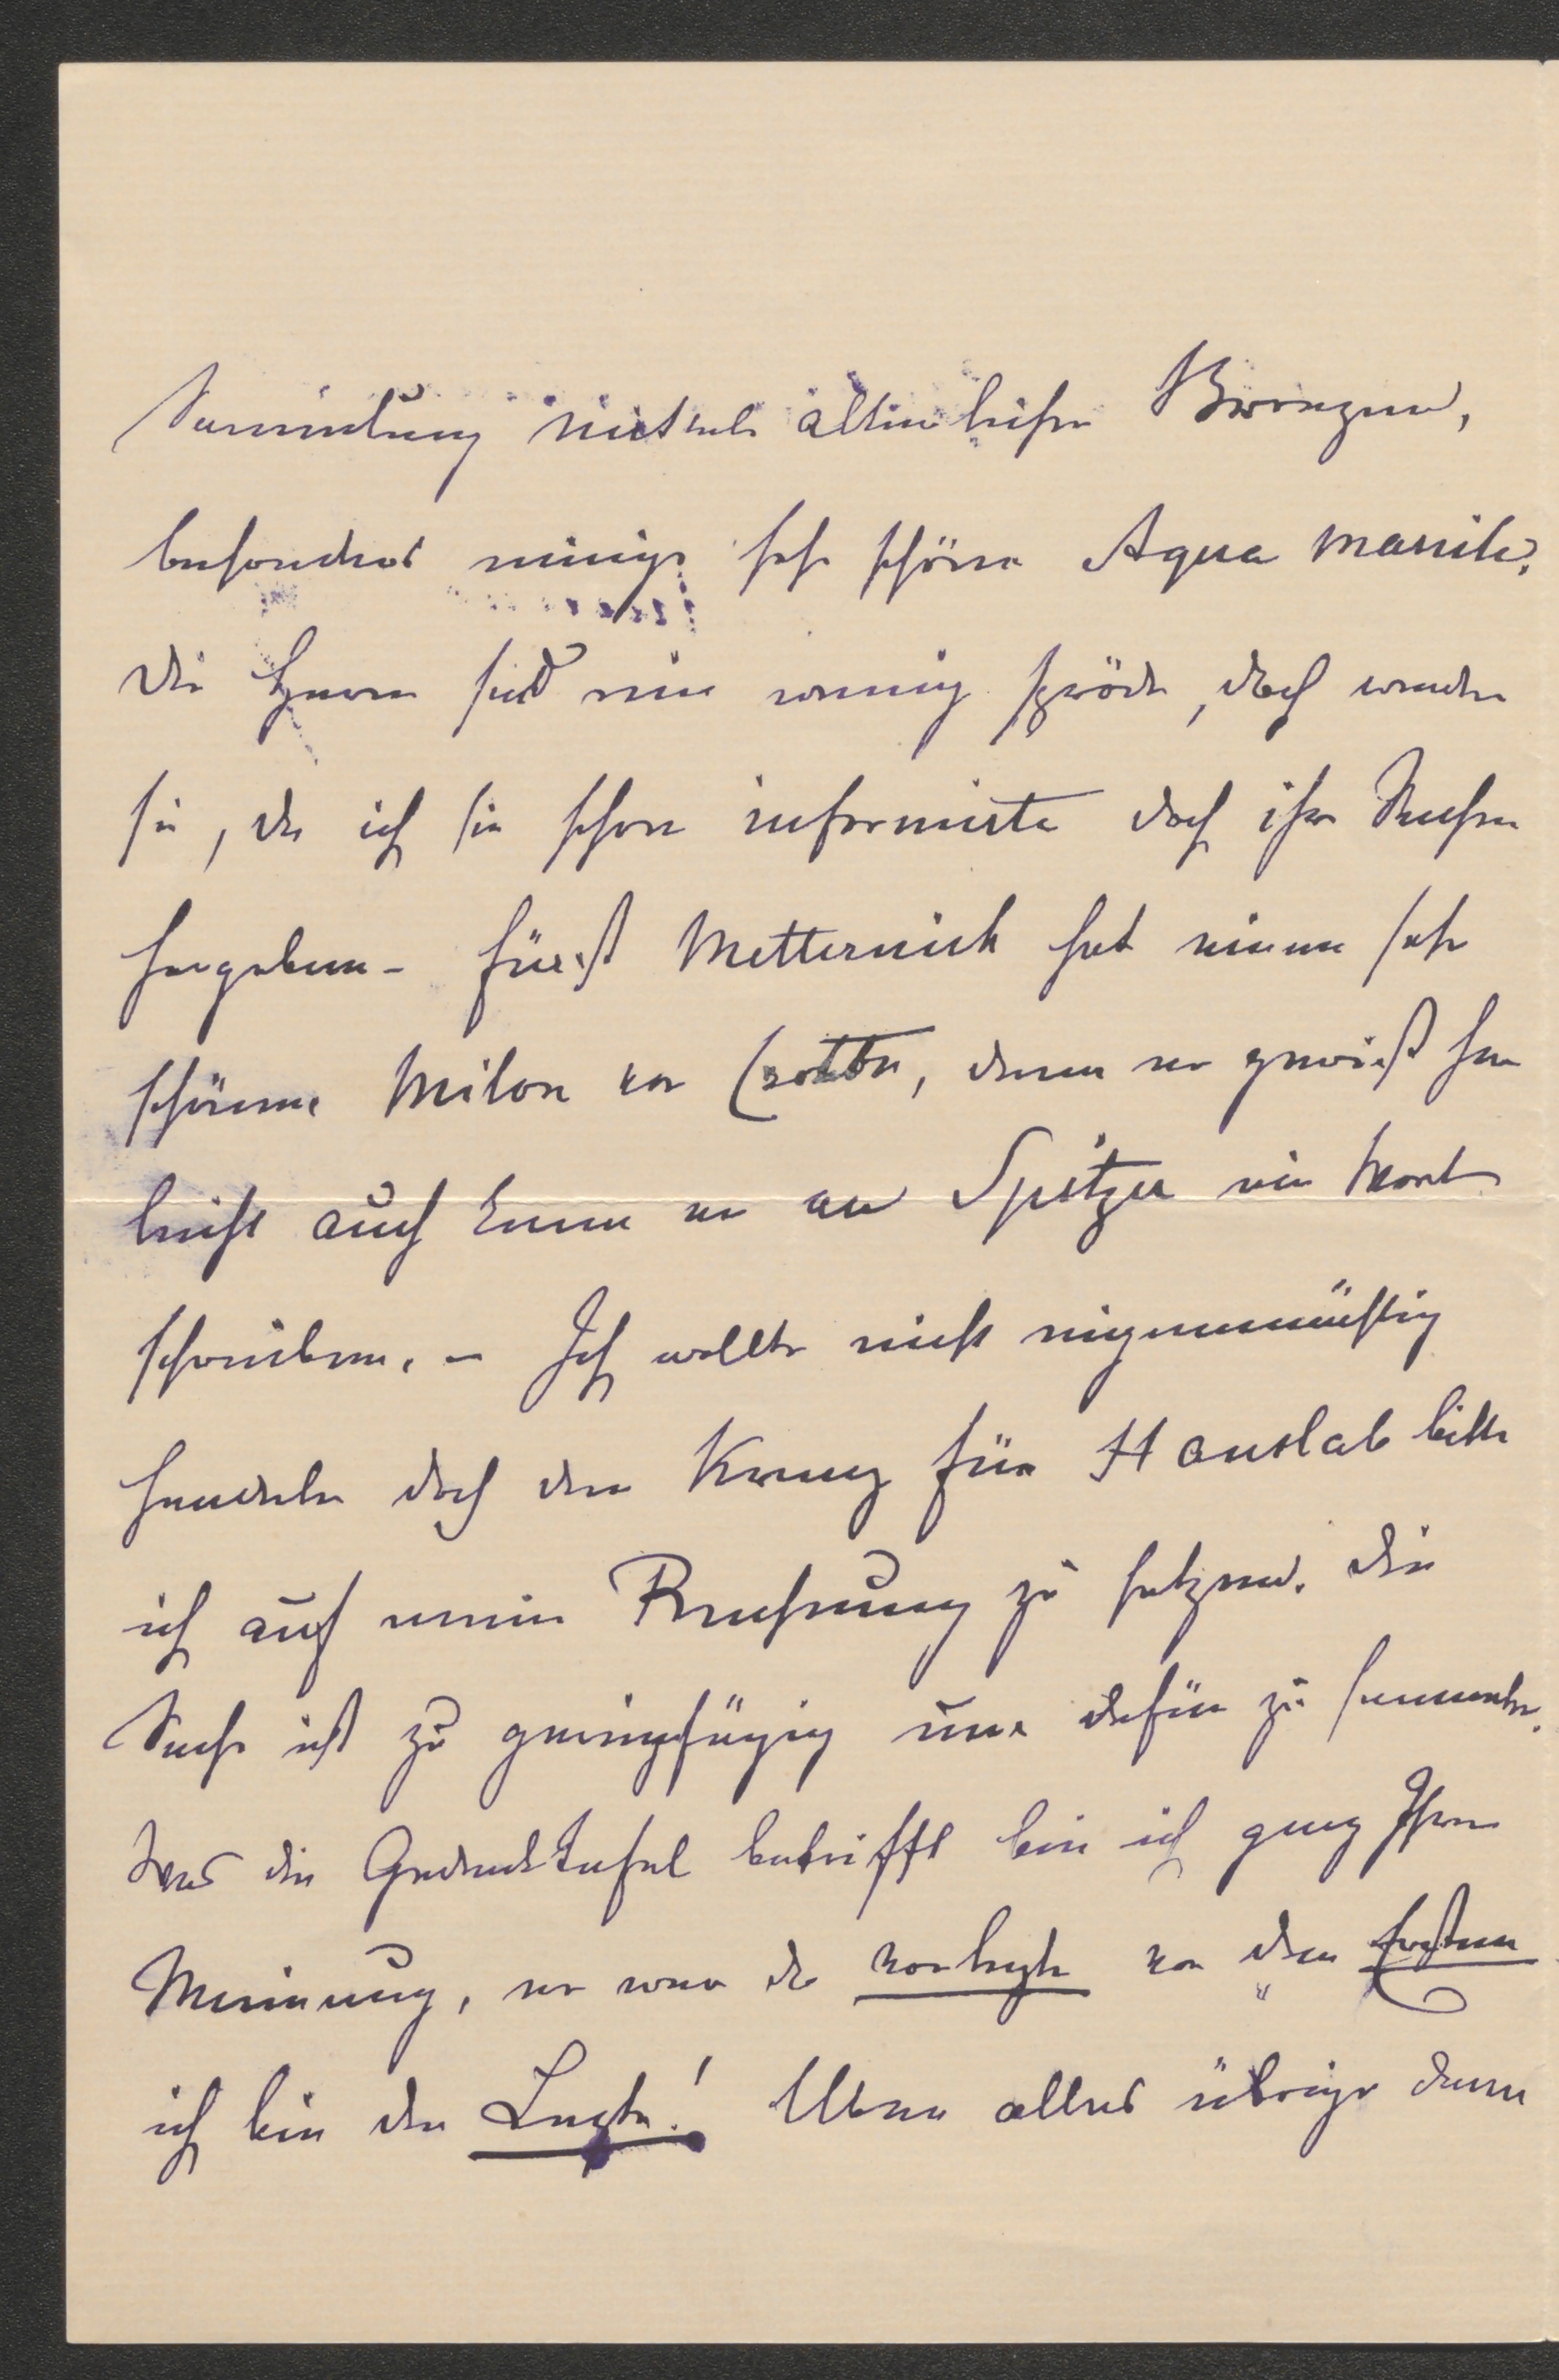 Sammlung mittelalterlicher Bronzen,
besonders einige sehr schöne Aqua manile.
Die Herren sind ein wenig spröde, doch werden
sie, da ich sie schon informirte doch ihre Sachen
hergeben – Fürst Metternich hat einen sehr
schönen Milon von Crotton, denen er gewiß her
leiht auch kann er an Spitzer ein Wort
schreiben. – Ich wollte nicht eigenmächtig
handeln doch den Kranz für Hauslab bitte
ich auf meine Rechnung zu setzen. Die
Sache ist zu geringfügig um dafür zu sammeln.
Was die Gedenktafel betrifft bin ich ganz Ihrer
Meinung, er war der vorletzte von den Festen
ich bin der Letzte! Über alles übrige dann